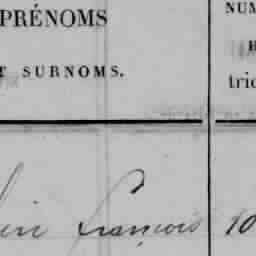 PRÉNOMS
T SURNOMS.
NUM
tric
françois 10